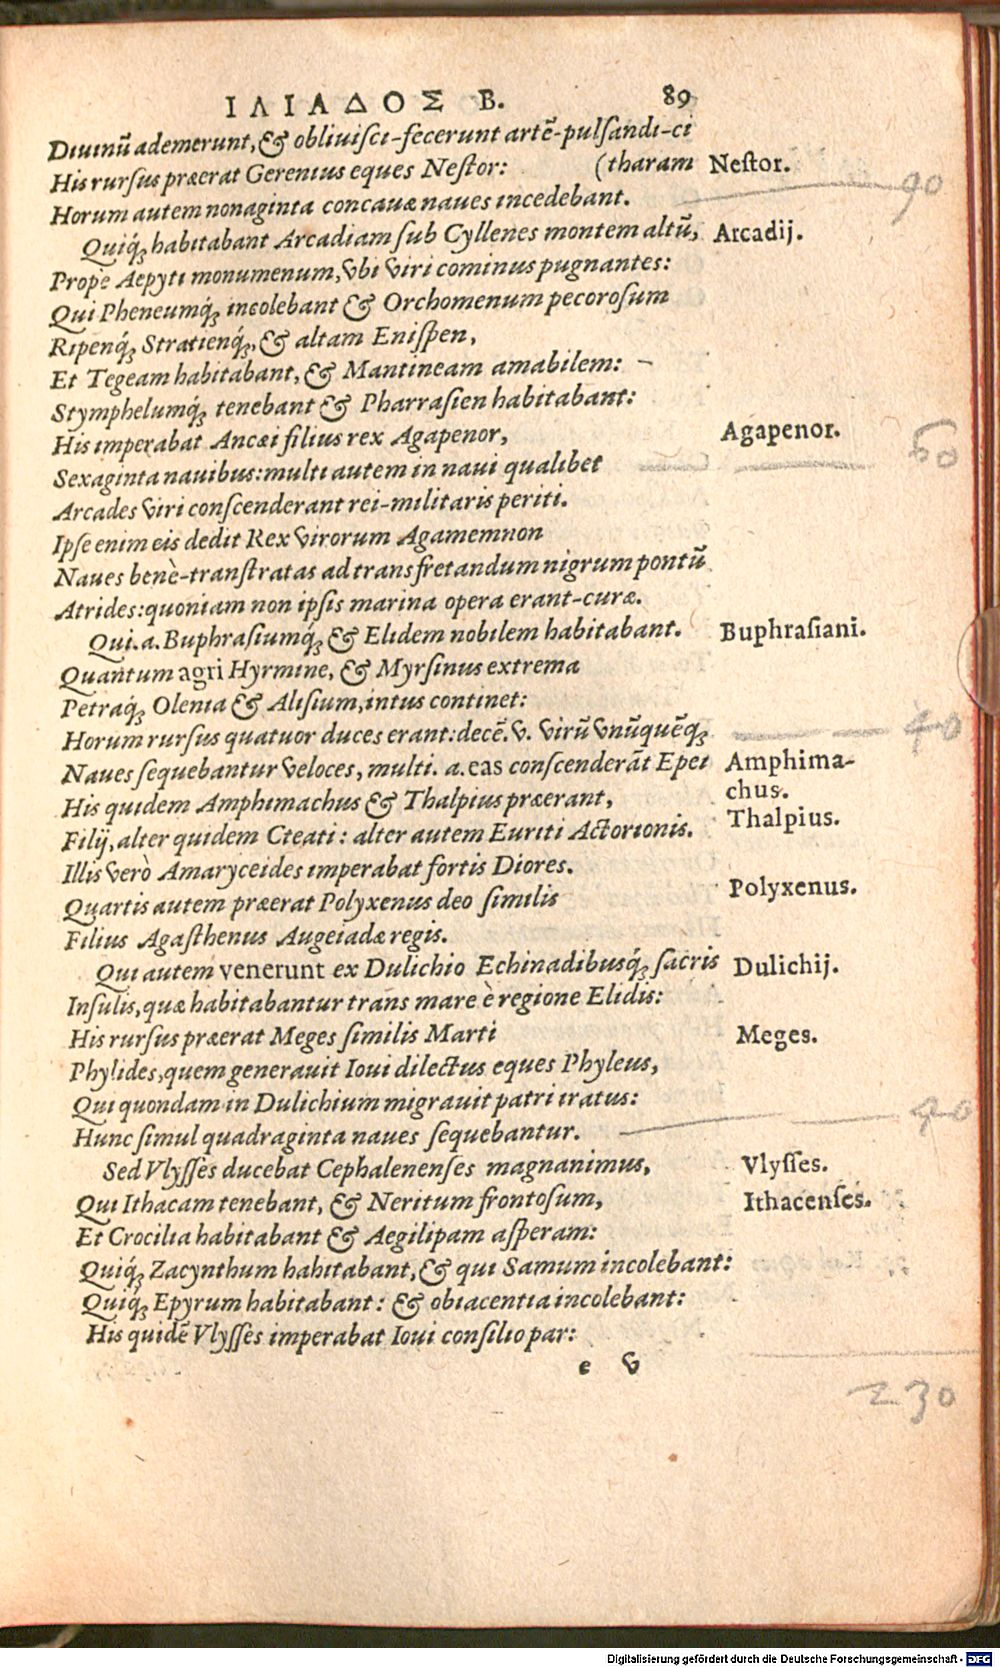 ΙΛΙΑΔΟΣ Β. 89
Diuinũ ademerunt, & obliuisci-fecerunt artẽ-pulsandi-ci
His rursus præerat Gerenius eques Nestor: (tharam Nestor.
Horum autem nonaginta concauæ naues incedebant. 90
Quiq́ꝫ habitabant Arcadiam sub Cyllenes montem altũ, Arcadij.
Prope Aepyti monumenum, vbi viri cominus pugnantes:
Qui Pheneumq́ꝫ incolebant & Orchomenum pecorosum
Ripenq́ꝫ Stratienq́ꝫ, & altam Enispen,
Et Tegeam habitabant, & Mantineam amabilem:
Stymphelumq́ꝫ tenebant & Pharrasien habitabant:
His imperabat Ancæi filius rex Agapenor, Agapenor. 60
Sexaginta nauibus: multi autem in naui qualibet
Arcades viri conscenderant rei-militaris periti.
Ipse enim eis dedit Rex virorum Agamemnon
Naues benè-transtratas ad transfretandum nigrum pontũ
Atrides: quoniam non ipsis marina opera erant-curæ.
Qui. a. Buphrasiumq́ꝫ & Elidem nobilem habitabant. Buphrasiani.
Quantum agri Hyrmine, & Myrsinus extrema
Petraq́ꝫ Olenia & Alisium, intus continet:
Horum rursus quatuor duces erant: decẽ. v. virũ vnũquẽqꝫ 40
Naues sequebantur veloces, multi. a. eas conscenderãt Epei Amphima-
chus.
His quidem Amphimachus & Thalpius præerant,
Filij, alter quidem Cteati: alter autem Euriti Actorionis. Thalpius.
Illis verò Amaryceides imperabat fortis Diores.
Quartis autem præerat Polyxenus deo similis Polyxenus.
Filius Agasthenus Augeiadæ regis.
Qui autem venerunt ex Dulichio Echinadibusq́ꝫ sacris Dulichij.
Insulis, quæ habitabantur trans mare è regione Elidis:
His rursus præerat Meges similis Marti Meges.
Phylides, quem generauit Ioui dilectus eques Phyleus,
Qui quondam in Dulichium migrauit patri iratus:
Hunc simul quadraginta naues sequebantur. 40
Sed Vlysses ducebat Cephalenenses magnanimus, Vlysses.
Qui Ithacam tenebant, & Neritum frontosum, Ithacenses.
Et Crocilia habitabant & Aegilipam asperam:
Quiq́ꝫ Zacynthum habitabant, & qui Samum incolebant:
Quiq́ꝫ Epyrum habitabant: & obiacentia incolebant:
His quidẽ Vlysses imperabat Ioui consilio par:
e v
230
Digitalisierung gefördert durch die Deutsche Forschungsgemeinschaft - DFG